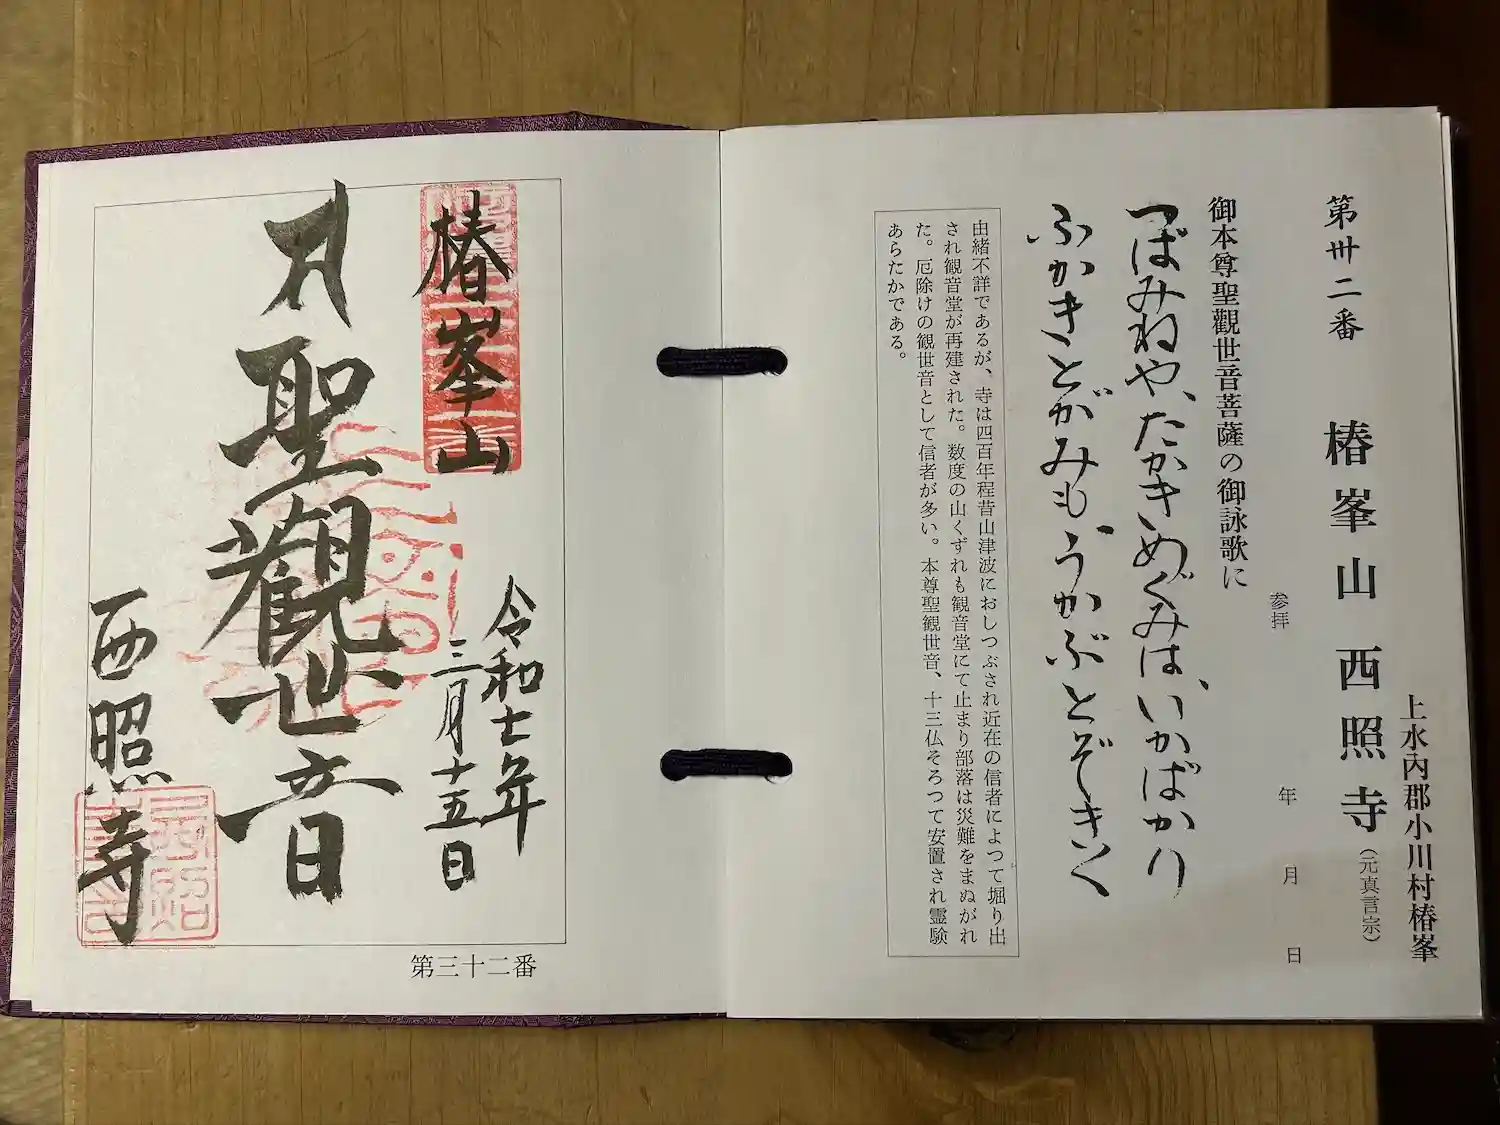 第卅二番
椿峯山 西照寺（元真言宗）
上水內郡小川村椿峯
参拝 年 月 日
御本尊聖觀世音菩薩の御詠歌に
つばみねや、たかきめぐみは、いかばかり
ふかきとがみも、うかぶとぞきく
由緒不詳であるが、寺は四百年程昔山津波におしつぶされ近在の信者によつて堀り出
され観音堂が再建された。数度の山くずれも観音堂にて止まり部落は災難をまぬがれ
た。厄除けの観世音として信者が多い。本尊聖観世音、十三仏そろつて安置され霊験
あらたかである。
椿峯山
令和七年
三月十五日
聖觀世音
西照寺
第三十二番